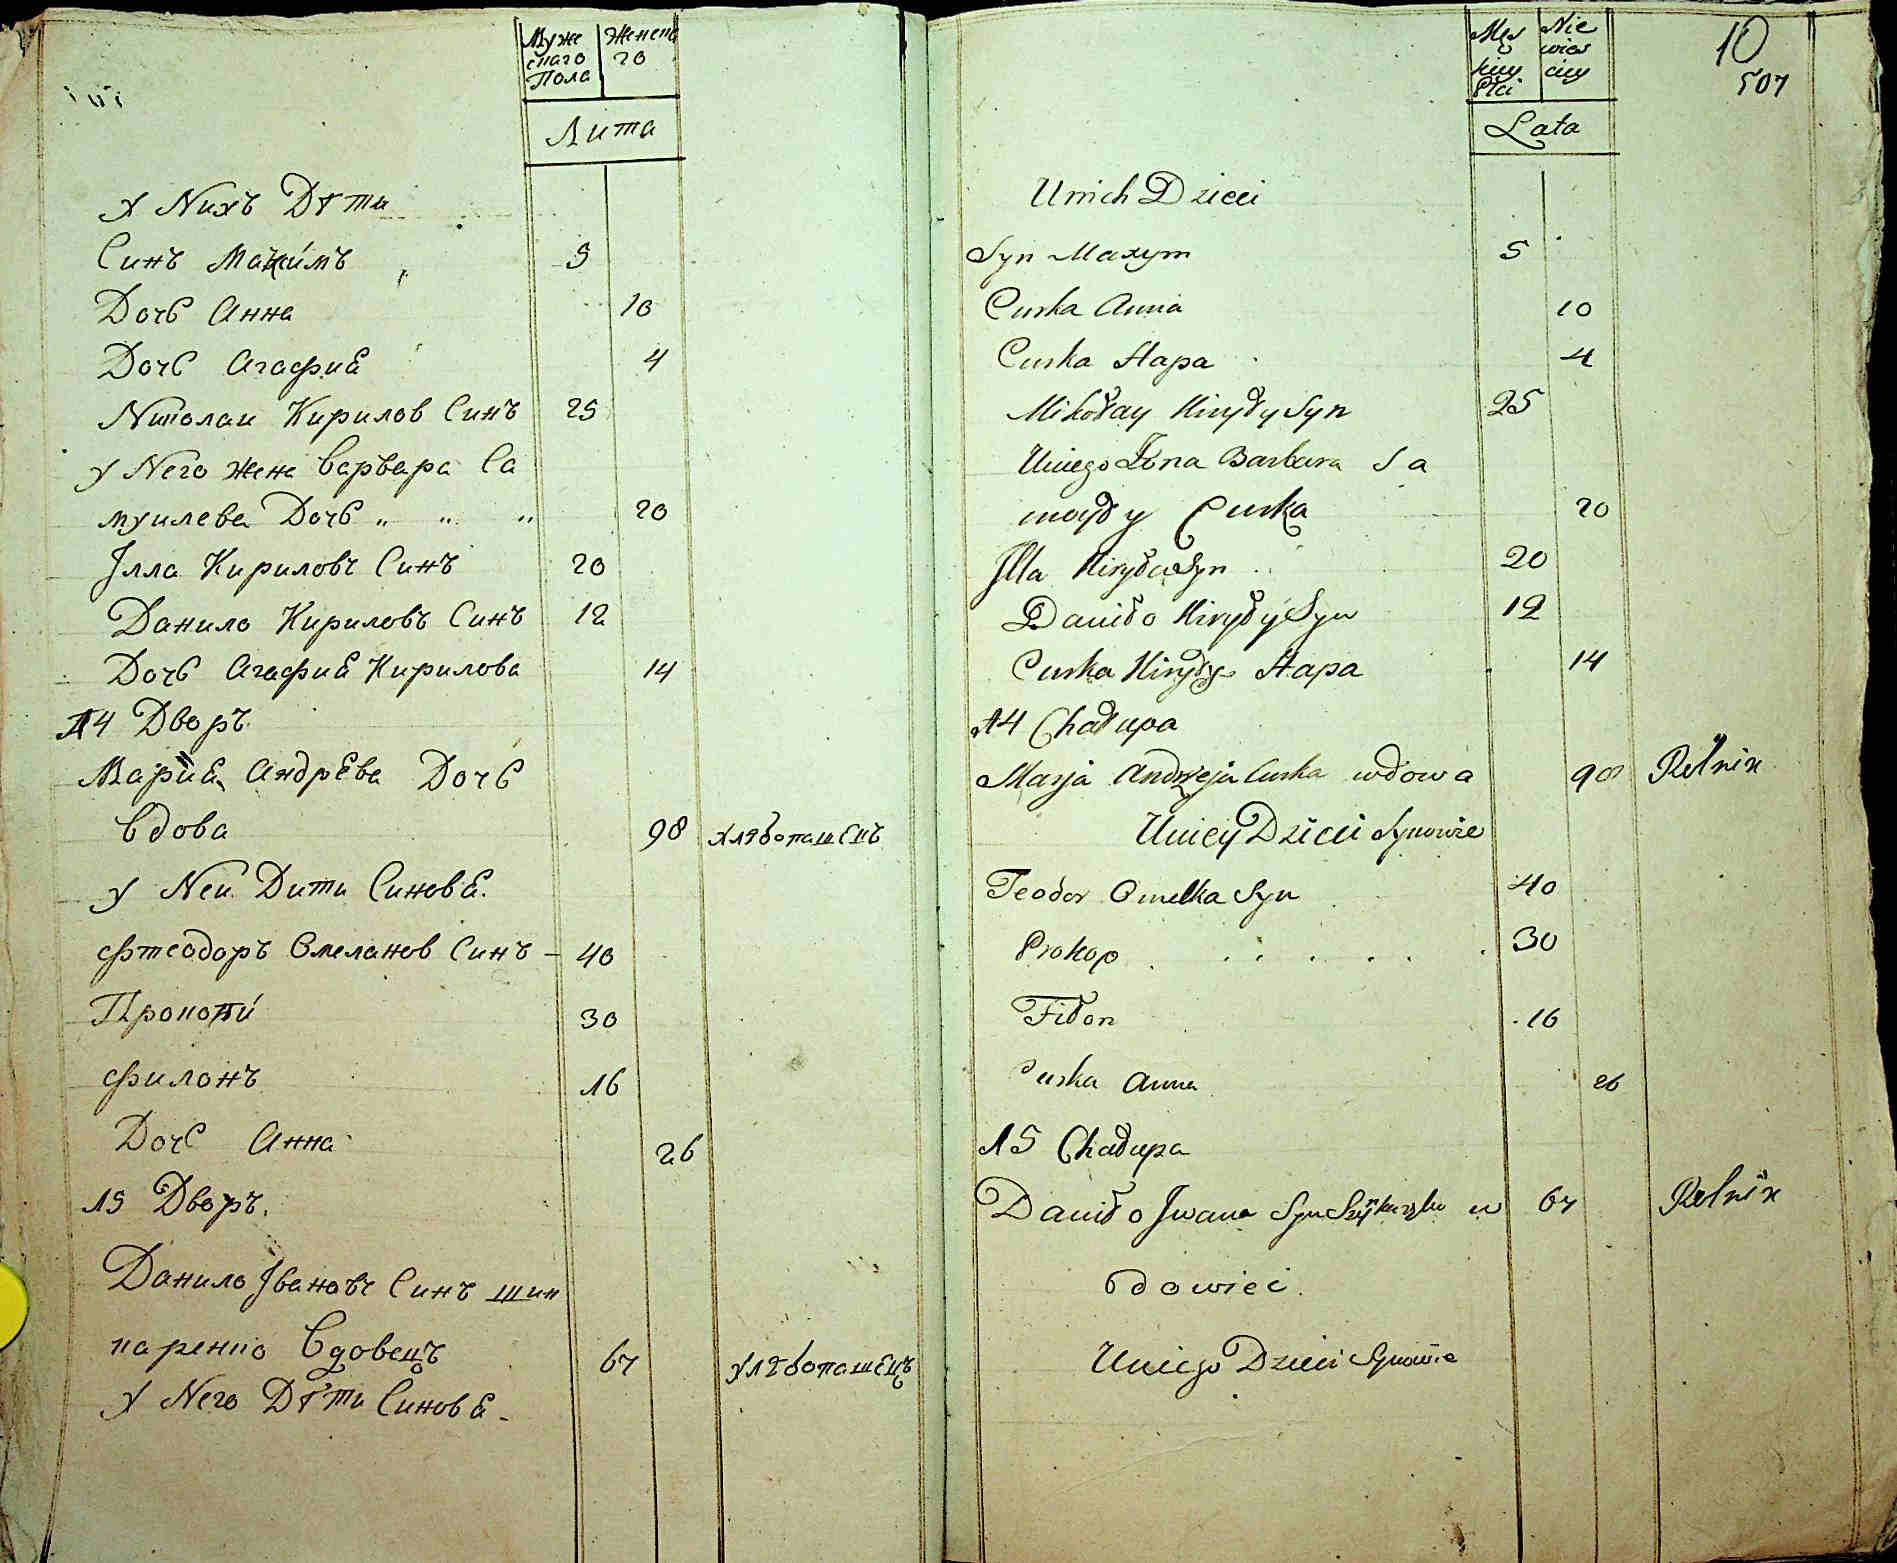 Муже Женска
скаго го
Пола
Лита
У Нихъ Дѣти
Синъ Макимъ 5
Дочь Анна 10
Дочь Агафиѣ 4
Николаи Кирилов Синъ 25
У Него жена Варвара Са
муилева Дочь „ „ „ 20
Илла Кириловъ Синъ 20
Данило Кириловъ Синъ 12
Дочь Агафиѣ Кирилова 14
14 Дворъ
Мариѣ Андрѣва Дочь
Вдова 98 хлѣбопашецъ
У Неи Дити Синовѣ.
Фтеодоръ Омеланов Синъ – 40
Прокопи 30
Филонъ 16
Дочь Анна 26
15 Дворъ.
Данило Івановъ Синъ Шин
каренко Вдовецъ 67 хлѣбопашецъ
У Него Дѣти Синовѣ -
Męs Nie
kiey wies
Płci ciey
10
507
Lata
U nich Dzieci
Syn Maxym 5
Curka Anna 10
Curka Hapa 4
Mikołay Kiryły Syn 25
U niego Żona Barbara Sa
moyły Curka 20
Illa Kiryła Syn 20
Daniło Kiryły Syn 12
Curka Kiryły Hapa 14
14 Chałupa
Marja Andrzeja Curka wdowa 98 Rolnik
U niey Dzieci Synowie
Teodor Omelka Syn 40
Prokop . . . . . . . 30
Filon 16
Curka Anna 26
15 Chałupa
Daniło Jwana Syn Szynkarzko w 67 Rolnik
dowiec
U niego Dzieci Synowie